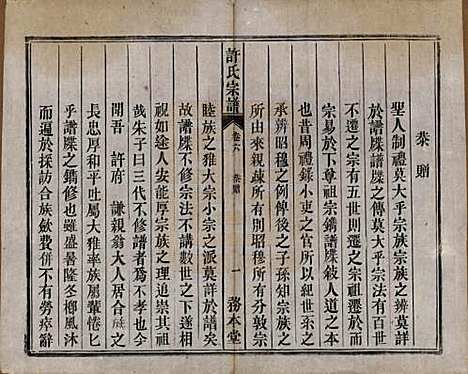 恭贈
聖人制禮莫大乎宗族宗族之辨莫詳
於譜牒譜牒之傳莫大乎宗法有百世
不遷之宗有五世則遷之宗祖遷於上
宗易於下尊祖宗鐫譜牒敍人道
也昔周禮錄小吏之官所以紀世系之
承辨昭穆之例俾後之子孫知宗族之
所由來親疎所有別昭穆所有分敦宗
許氏宗譜
卷六
恭贈
一
務本堂
睦族之雅大宗小宗之派莫詳於譜矣
故譜牒不修宗法不講數世之之下
視如途人安能厚宗族之理追崇其祖
哉朱子曰三代不修譜者為不孝也今
閒吾許府謙親翁大人居合族之
長忠厚和平吐屬大雅率族屬輩惓匕
乎譜牒之鐫修也雖盛暑隆冬櫛風沐
雨遍於採訪合族斂費併不有勞瘁辭